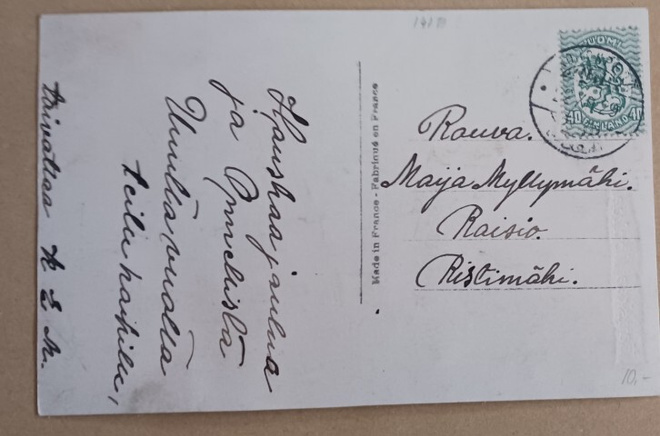 Hauskaa joulua
ja Onnellista
Uutta vuotta
teille kaikille,
Toivottaa K E M.
Made in France - Fabriqué en France
SUOMI
FINLAND
40
40
Rouva.
Maija Myllymäki.
Raisio.
Ristimäki.
10,-